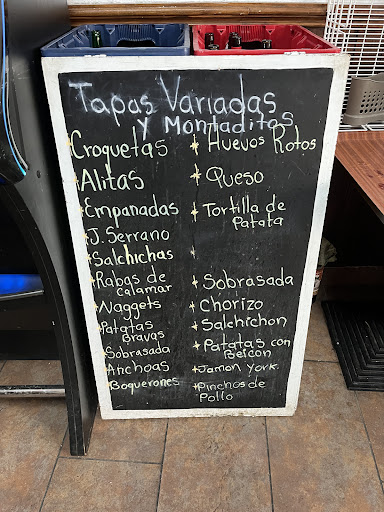 Tapas Variadas
y Montaditos
Croquetas
Alitas
Empanadas
J. Serrano
Salchichas
Rabas de
calamar
Naggets
Patatas
Bravas
Sobrasada
Anchoas
Boquerones
Huevos Rotos
Queso
Tortilla de
Patata
Sobrasada
Chorizo
Salchichon
Patatas con
Beicon
Jamon York.
Pinchos de
Pollo